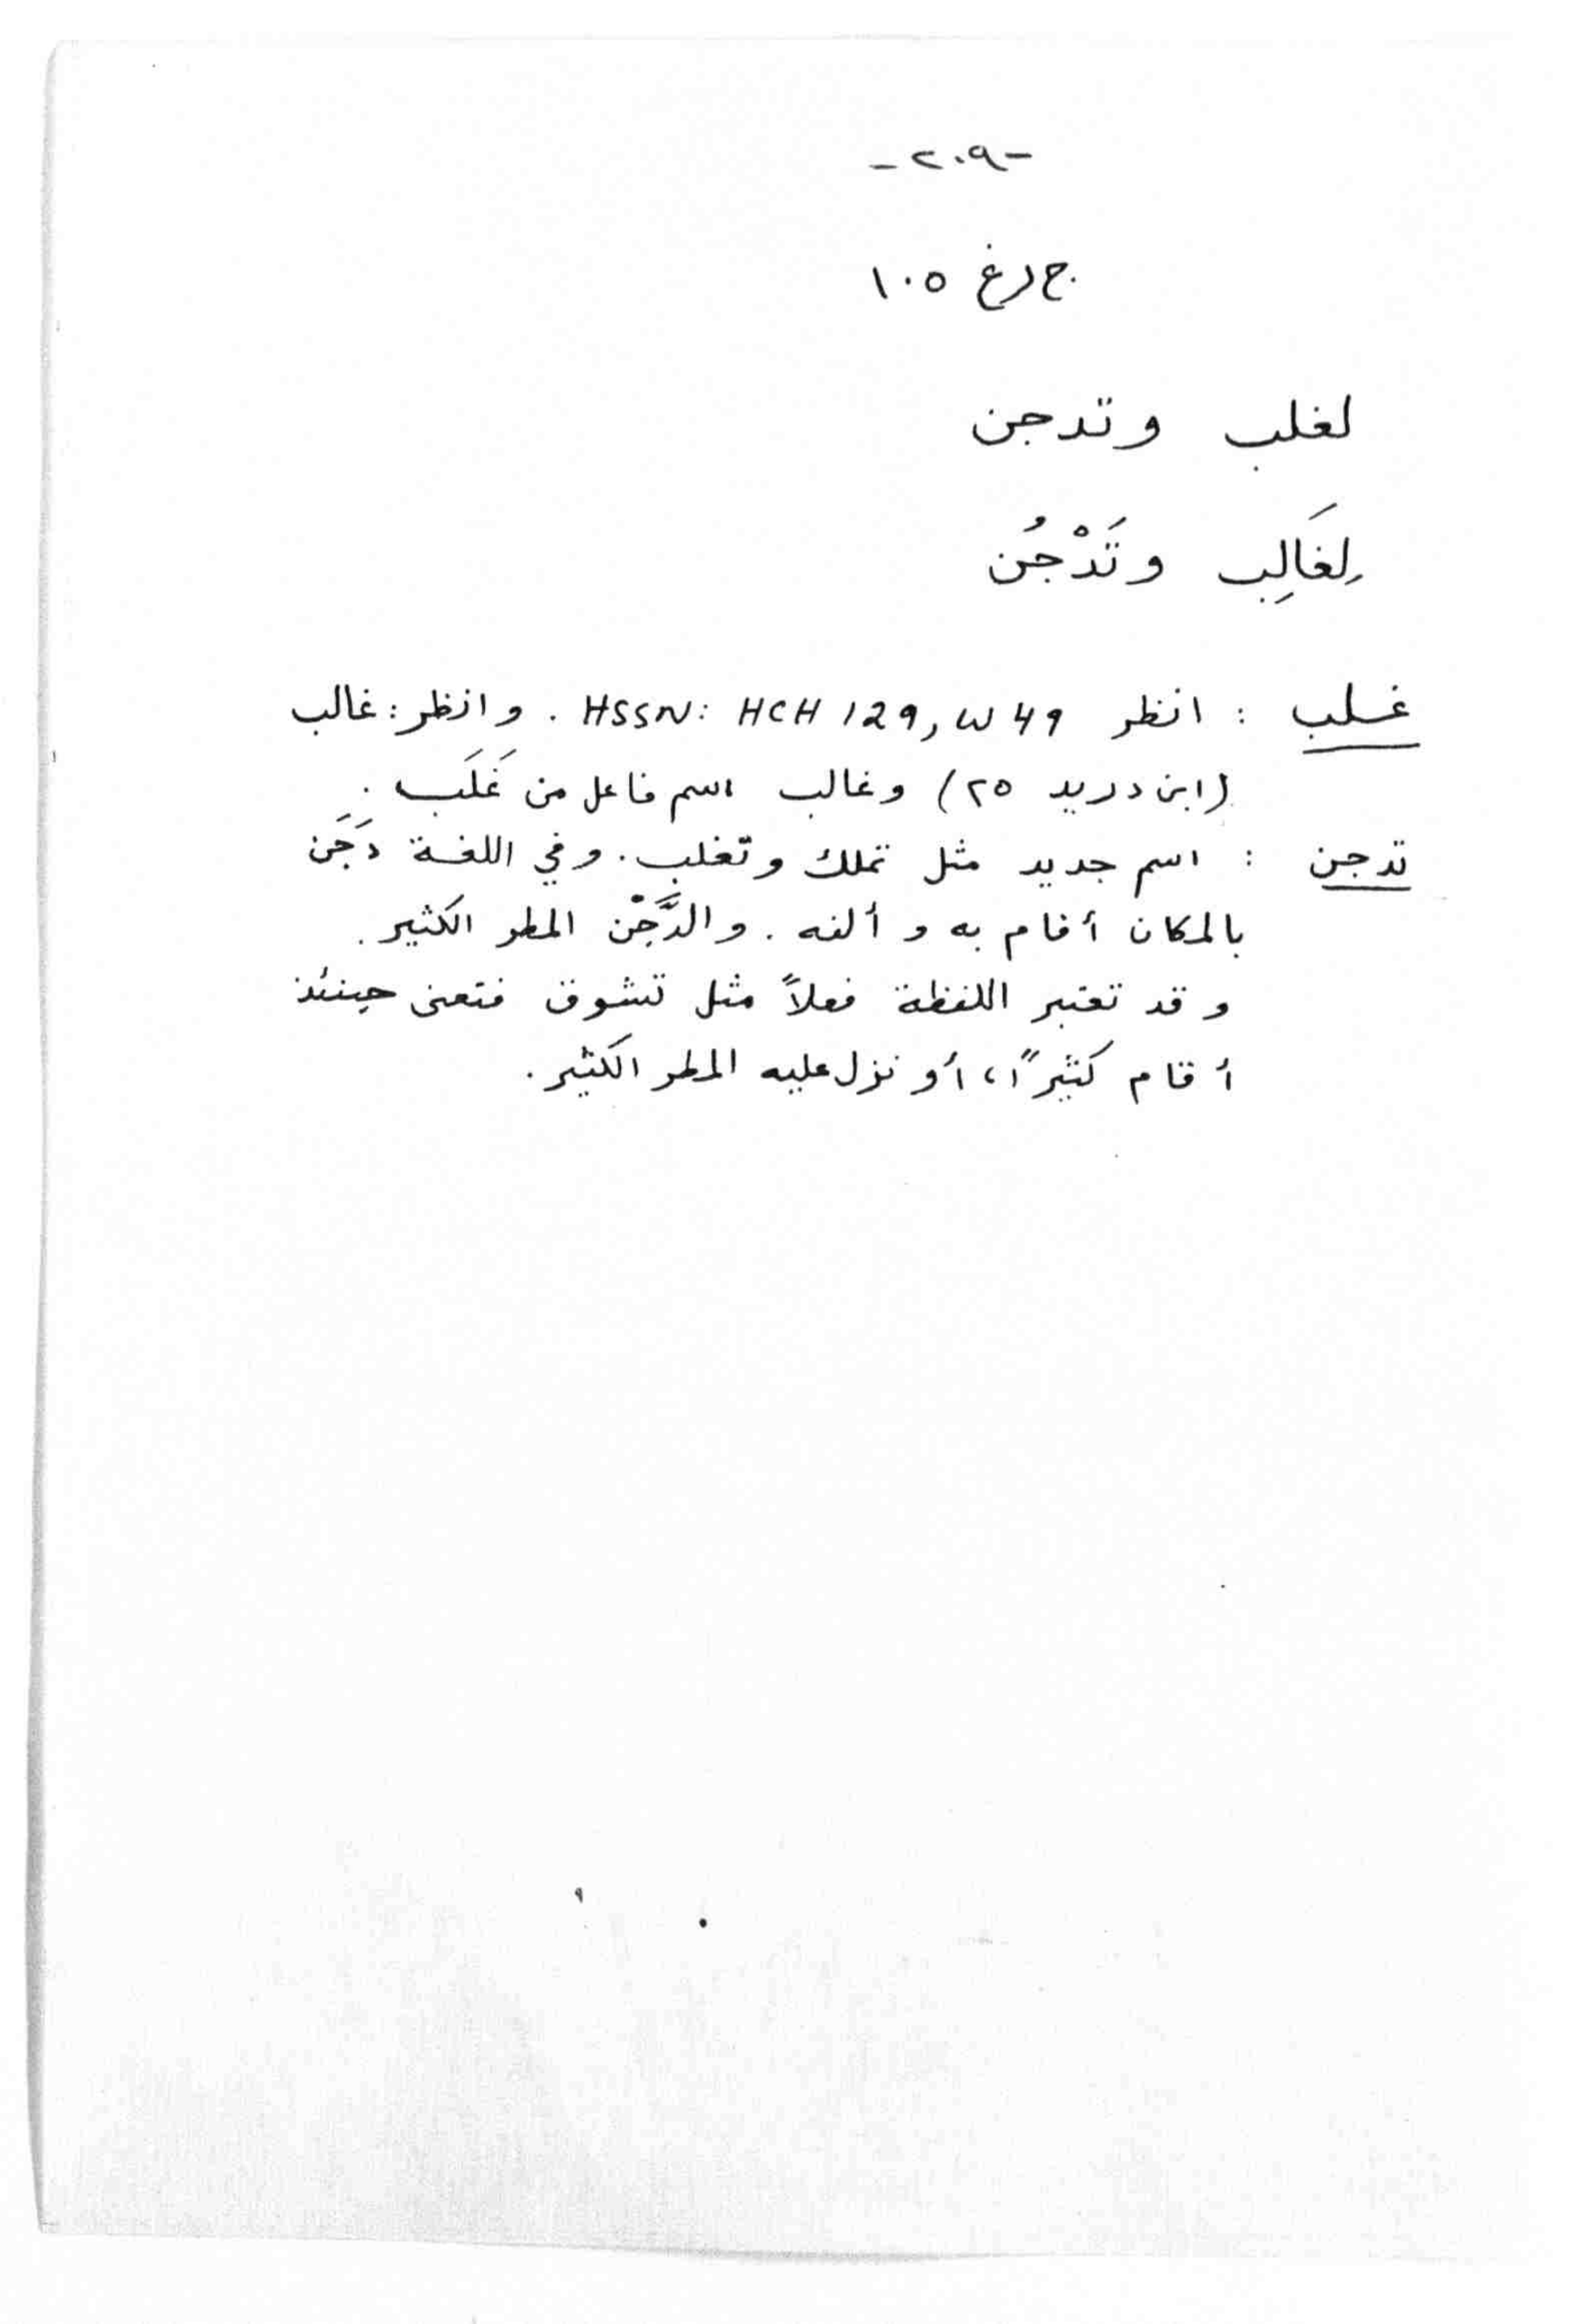 -٢٠٩-
ج رغ ١٠٥
لغلب وتدجن
لِغَالِب وتَدْجُن
غلب : انظر HSSN: HCH 129, W 49 . وانظر: غالب
(ابن دريد ٢٥) وغالب اسم فاعل من غَلَب .
تدجن : اسم جديد مثل تملك وتغلب. وفي اللغة دَجَن
بالمكان أقام به وألفه . والدَّجْن المطر الكثير .
وقد تعتبر اللفظة فعلاً مثل تشوق فتعني حينئذ
أقام كثيرًا، أو نزل عليه المطر الكثير .